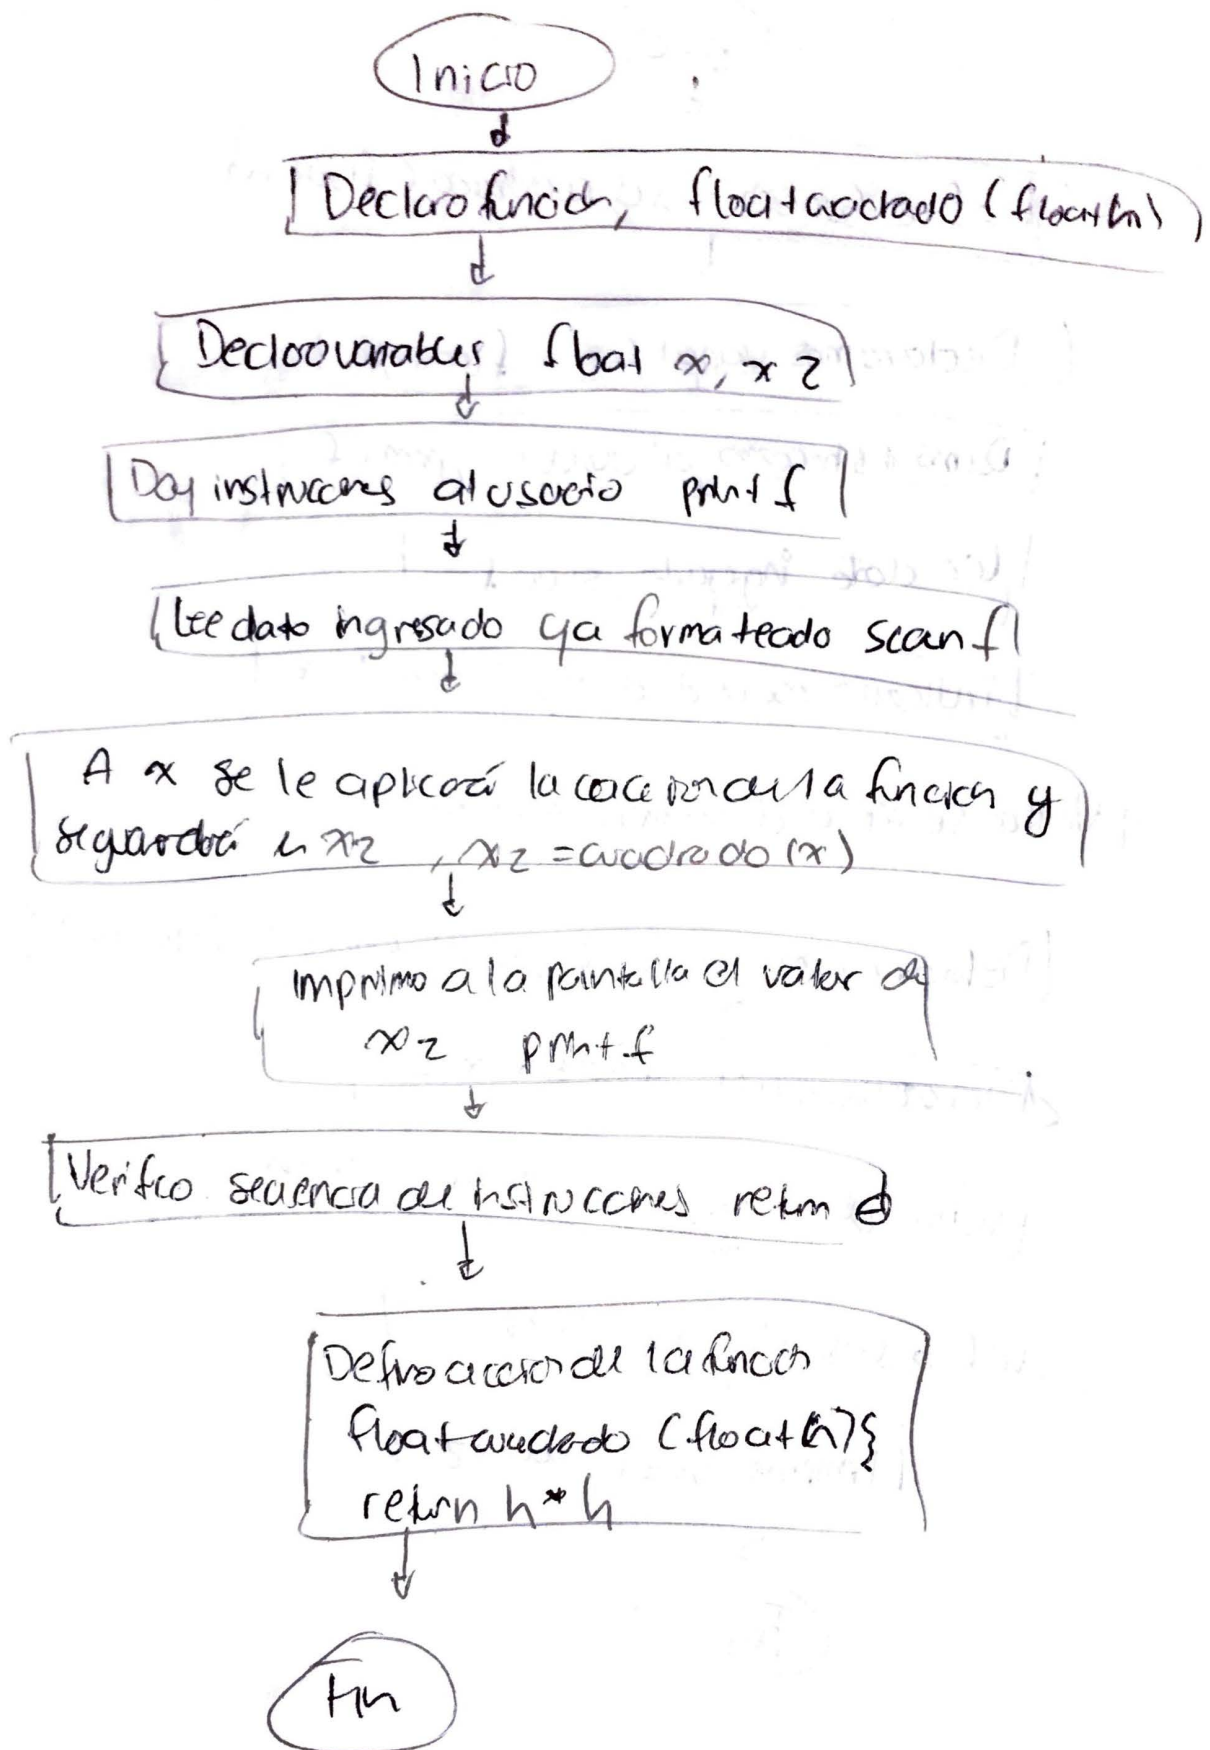 Inicio
Declaro función, float cuadrado (float h)
Declaro variables float x, x2
Doy instrucciones al usuario printf
Lee dato ingresado ya formateado scanf
A x se le aplicará la función y
se guardará en x2, x2 = cuadrado (x)
Imprimo a la pantalla el valor de
x2 printf
Verifico secuencia de instrucciones return 0
Defino acción de la función
float cuadrado (float h) {
return h * h
Fin